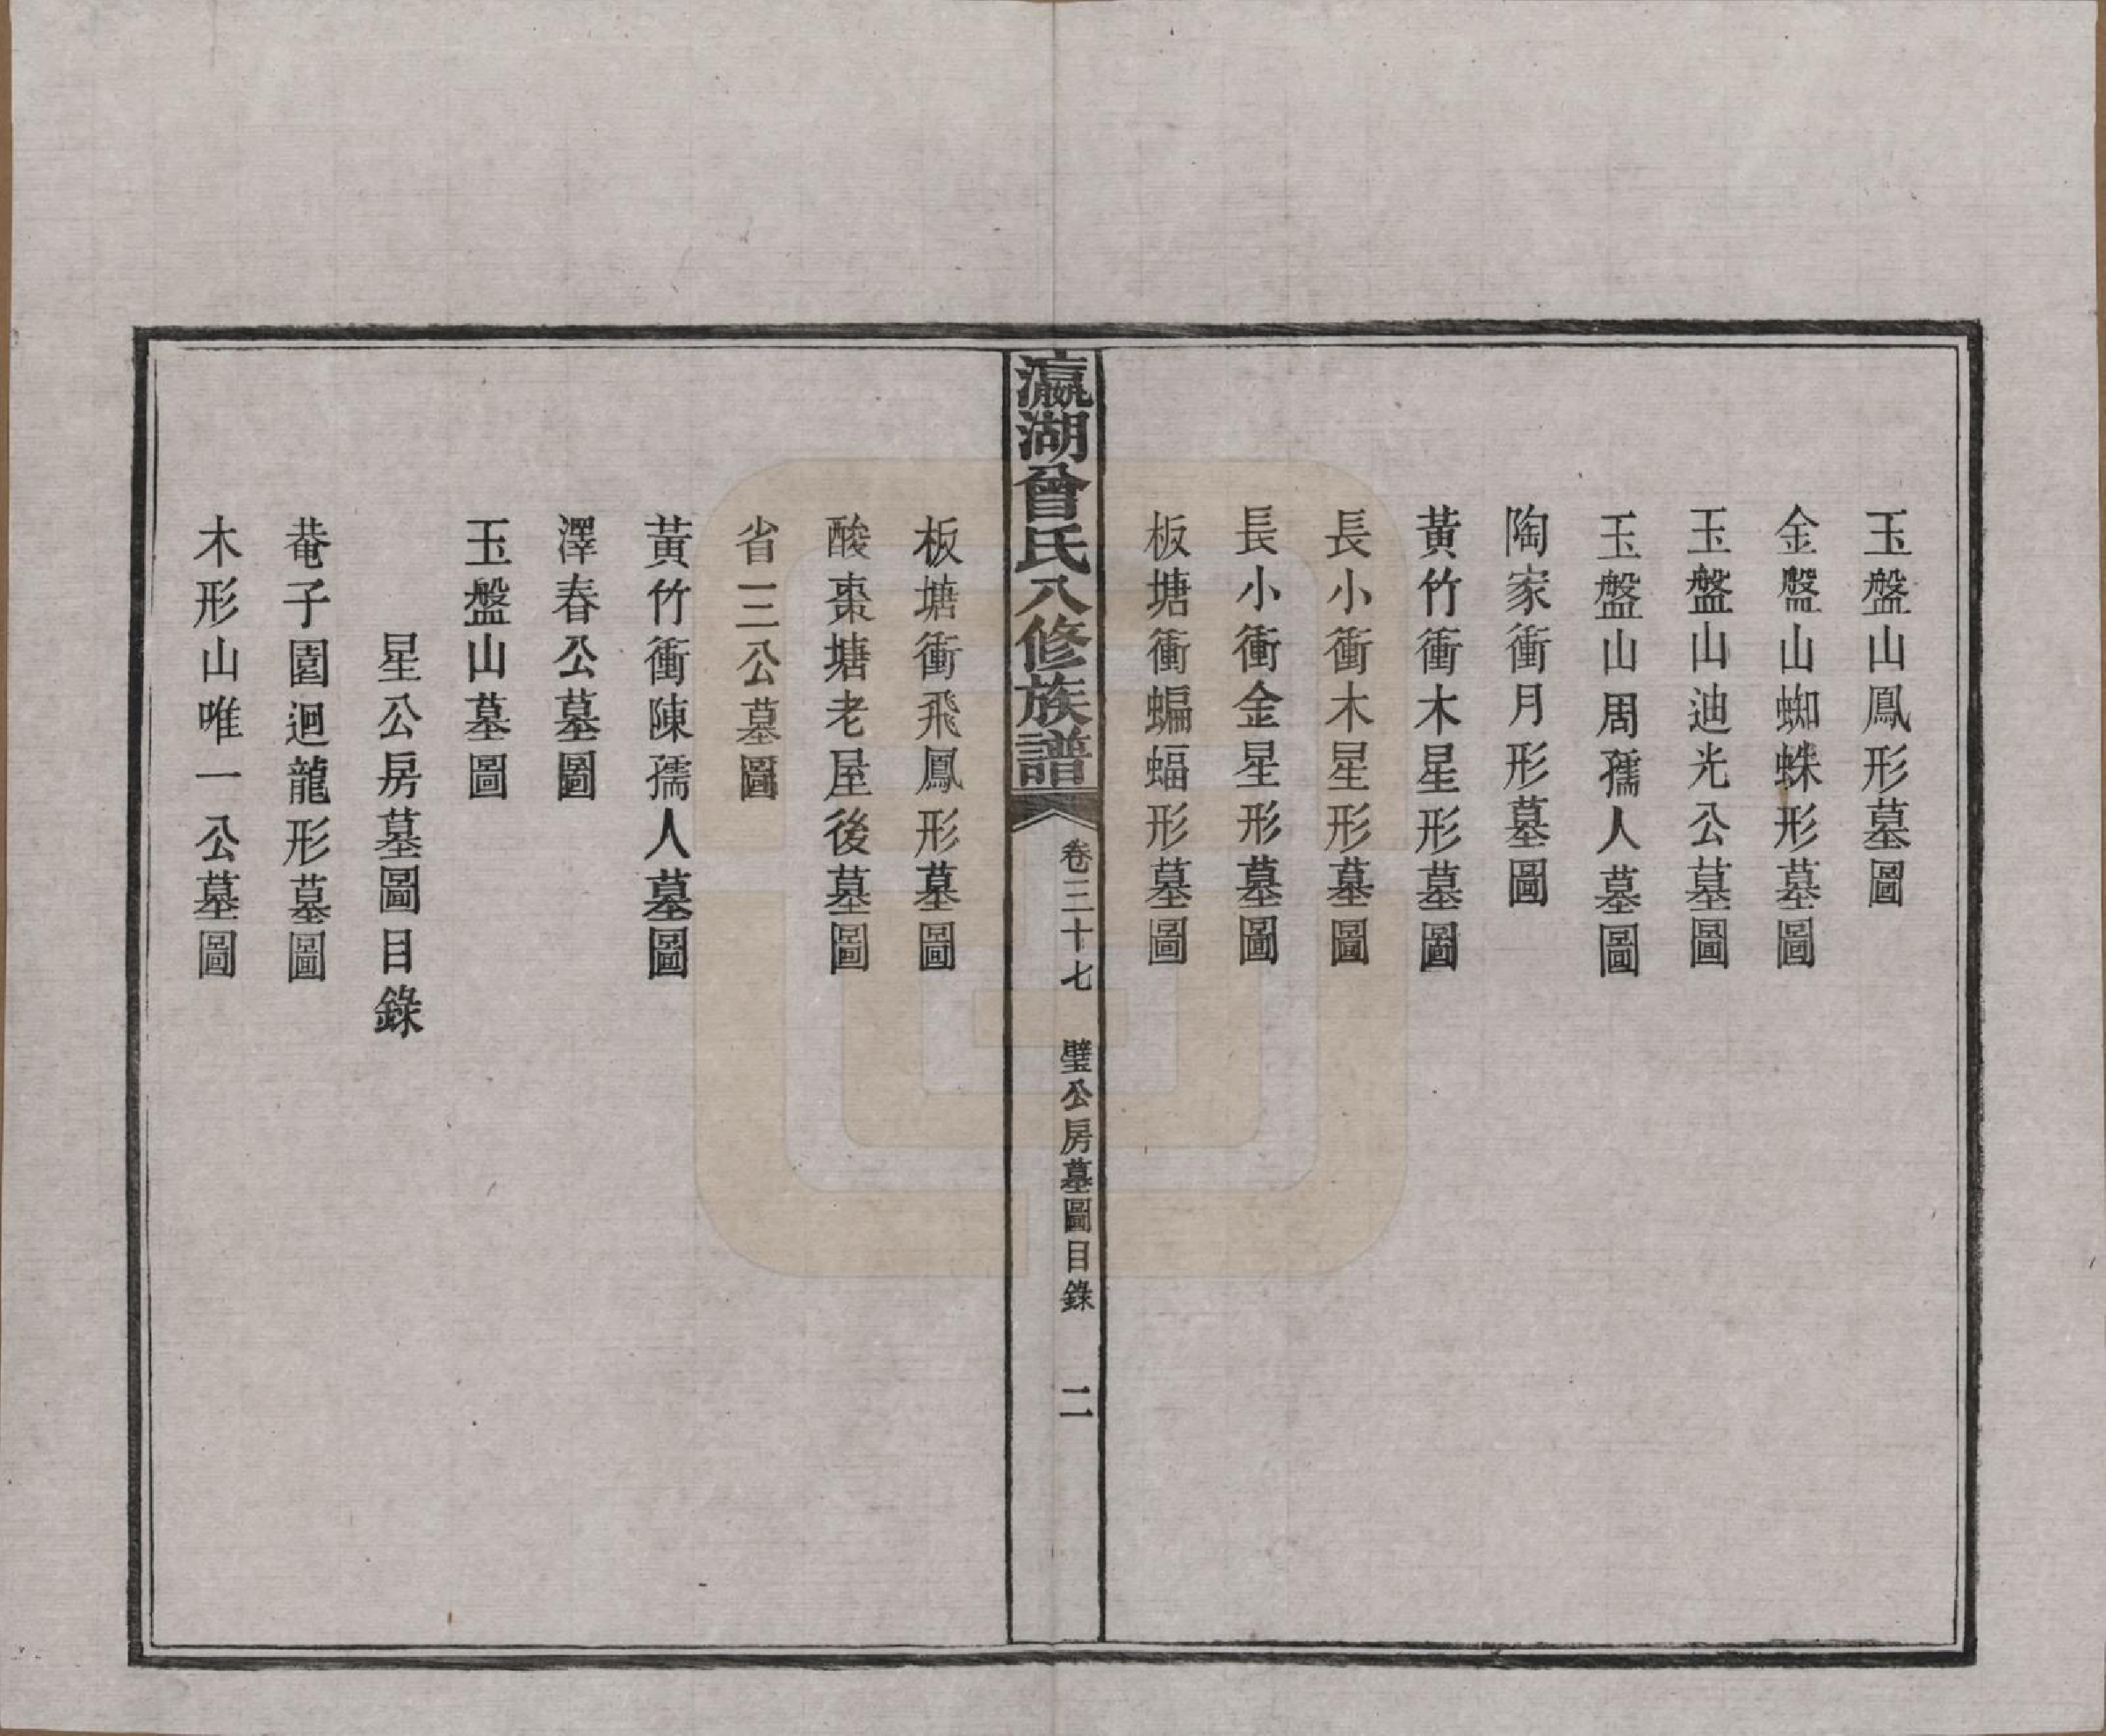 玉盤山鳳形墓圖
金盤山蜘蛛形墓圖
玉盤山迪光公墓圖
玉盤山周孺人墓圖
陶家衝月形墓圖
黃竹衝木星形墓圖
長小衝木星形墓圖
長小衝金星形墓圖
板塘衝蝙蝠形墓圖
瀛湖曾氏八修族譜
卷三十七
璧公房墓圖目錄
二
板塘衝飛鳳形墓圖
酸棗塘老屋後墓圖
省三公墓圖
黃竹衝陳孺人墓圖
澤春公墓圖
玉盤山墓圖
星公房墓圖目錄
菴子園迴龍形墓圖
木形山唯一公墓圖